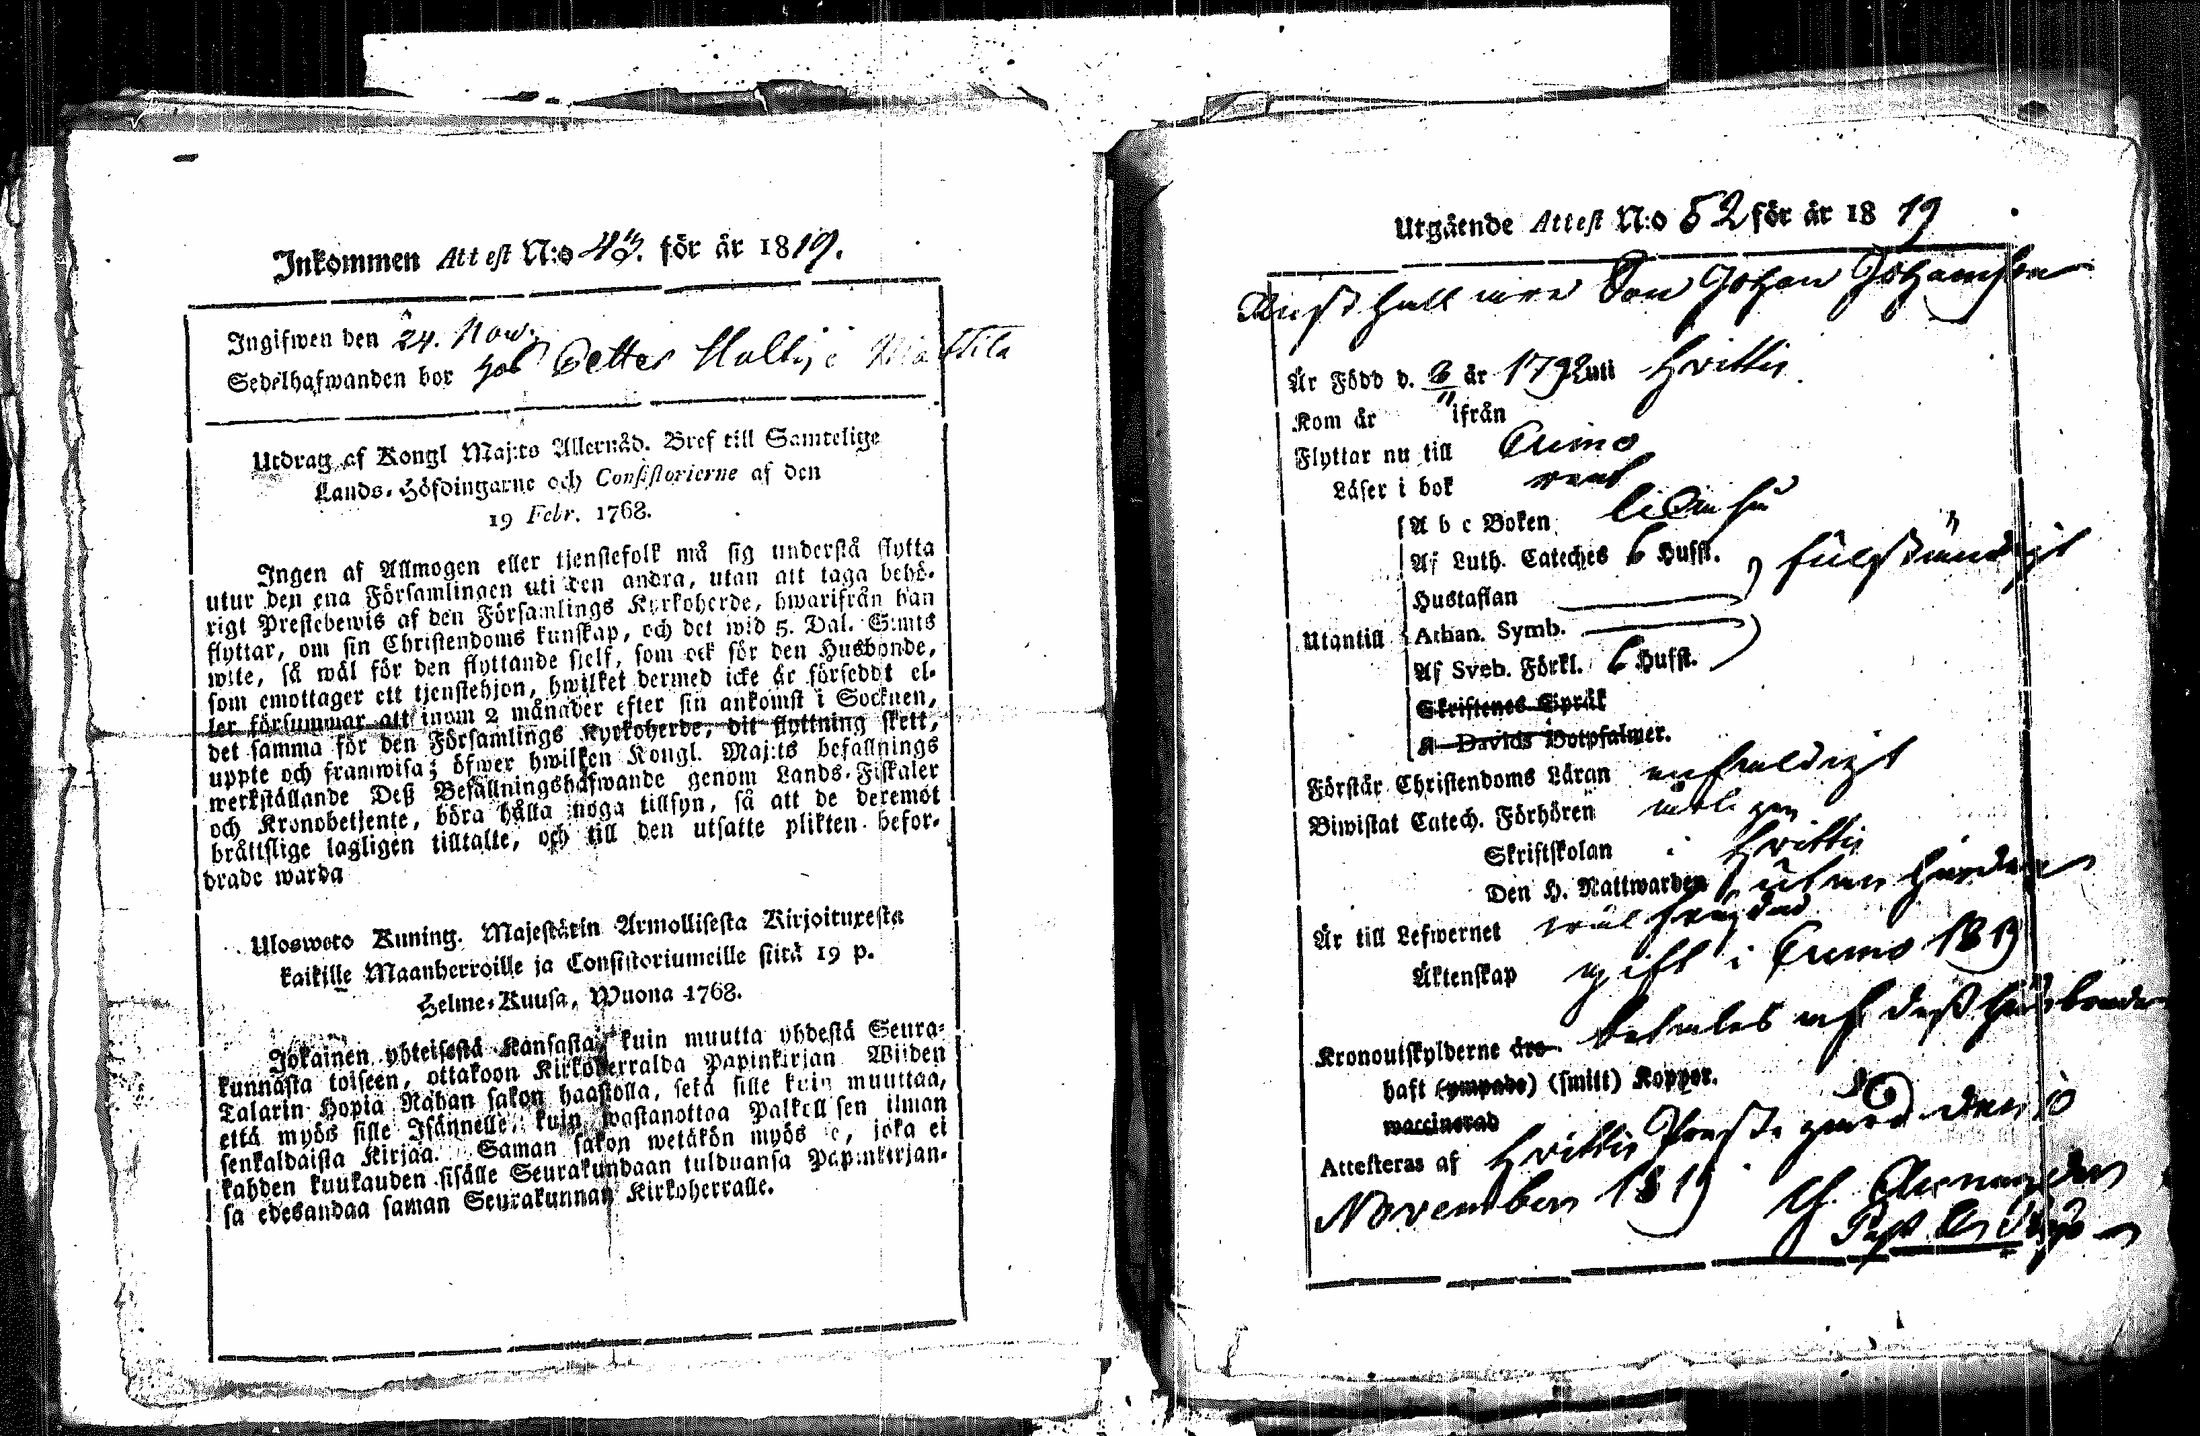 Inkommen Attest N:o 43. för år 1819.
Ingifwen den 24. Nov.
Sedelhafwanden bor hos Petter Mattila
Utdrag af Kongl Maj:ts Allernåd. Bref till Samtelige
Lands-Höfdingarne och Consistorierne af den
19 Febr. 1768.
Ingen af Allmogen eller tjenstefolk må sig understå flytta
utur den ena Församlingen uti den andra, utan att taga behö-
rigt Prestebewis af den Församlings Kyrkoherde, hwarifrån han
flyttar, om sin Christendoms kunskap, och det wid 5. Dal. S:mts
wite, så wäl för den flyttande sjelf, som ock för den Husbonde,
som emottager ett tjenstehjon, hwilket dermed icke är förseddt el-
ler försummar att inom 2 månader efter sin ankomst i Socknen,
det samma för den Församlings Kyrkoherde, dit flyttning skett,
uppte och framwisa; öfwer hwilken Kongl. Maj:ts befallnings
werkställande Deß Befallningshafwande genom Lands-Fiskaler
och Kronobetjente, böra hålla noga tillsyn, så att de deremot
bråttslige lagligen tilltalte, och till den utsatte plikten befor-
drade warda
Ulosweto Kuning. Majestätin Armollisesta Kirjoituxesta
kaikille Maanherroille ja Consistoriumeille siitä 19 p.
Helme-Kuusa, Wuona 1768.
Jokainen yhteisestä Kansasta, kuin muutta yhdestä Seura-
kunnasta toiseen, ottakoon Kirkoherralda Papinkirjan Wiiden
Talarin Hopia Rahan sakon haastolla, sekä sille kuin muuttaa,
että myös sille Isännelle, kuin wastanottaa Palkollisen ilman
senkaldaista Kirjaa. Saman sakon wetäkön myös se, joka ei
kahden kuukauden sisälle Seurakundaan tulduansa Papinkirjan-
sa edesandaa saman Seurakunnan Kirkoherralle.
Utgående Attest N:o 52 för år 1819
Son Johan Johansson
Är Född d. 3 år 1792 uti Hvittis
Kom år " ifrån
Flyttar nu till Eurmo
Läser i bok rent
A b c Boken
Af Luth. Cateches 6 Hufst.
fulständigt
Hustaflan
Utantill Athan. Symb.
Af Sveb. Förkl. 6 Hufst.
Skriftenes Språk
K Davids Botpsalmer.
Förstår Christendoms Läran enfaldigt
Biwistat Catech. Förhören
Skriftskolan i Hvittis
Den H. Nattwarden
Är till Lefwernet wäl frägdad
Äktenskap gift i 1819
Kronoutskylderne äro betales af deß husbonde
haft (ympade) (smitt) Koppor.
waccinerad
Attesteras af Hvittis Prestegård den 10
November 1819